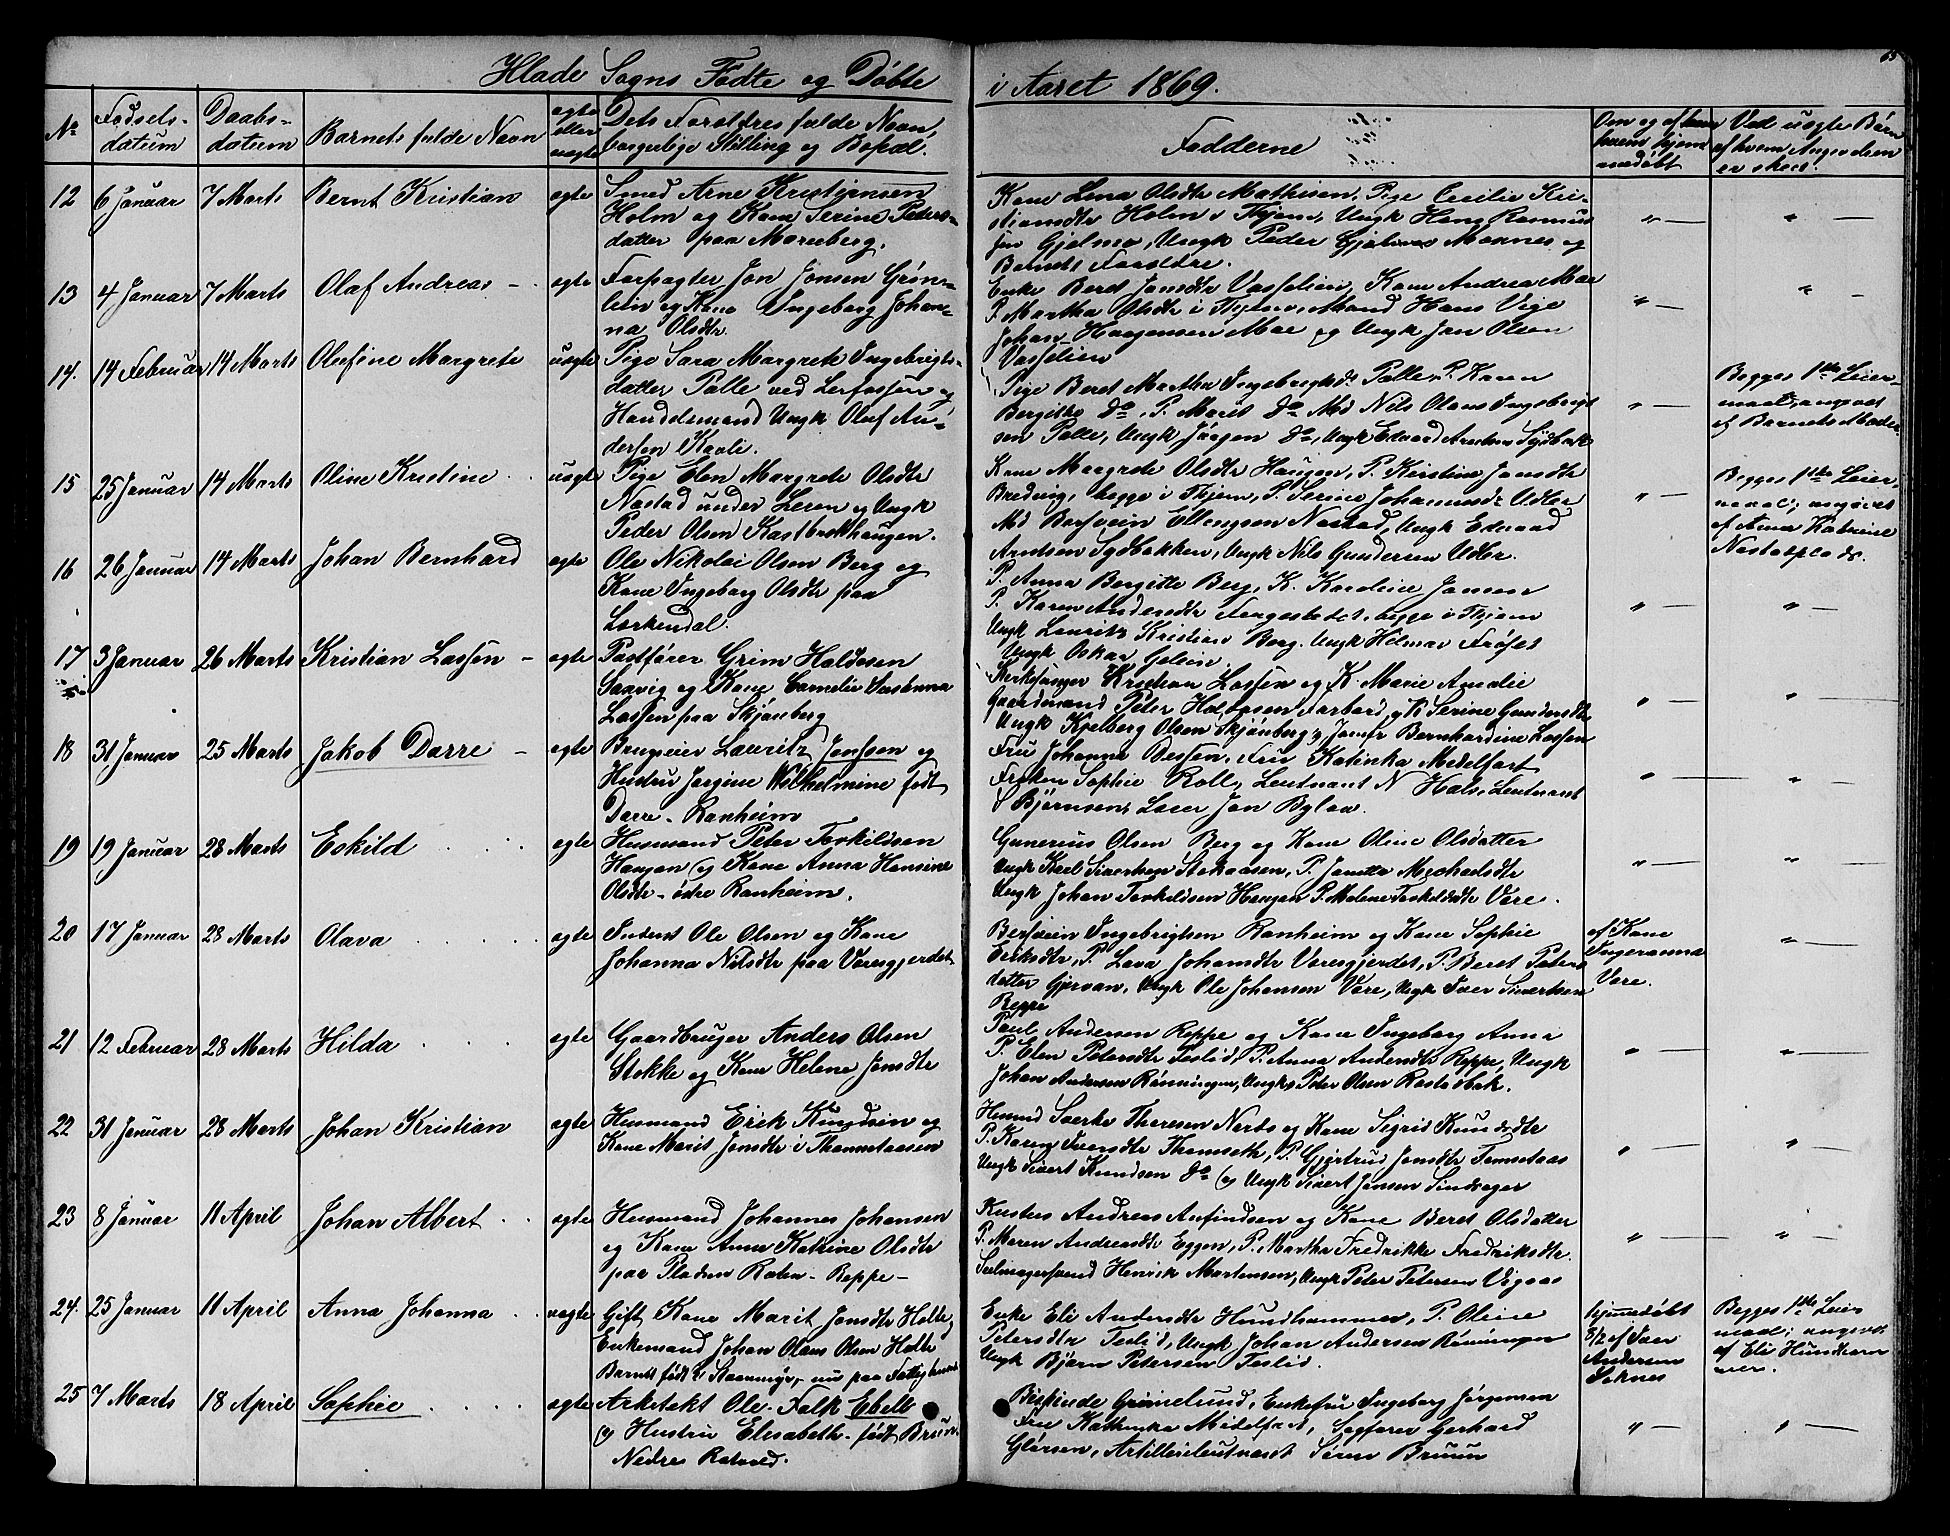 65
Hlade Sogns Fødte og Døbte i Aaret 1869.
No
Fødsels-
datum
Daabs-
datum
Barnets fulde Navn
ægte
eller
uægte
Dets Forældres fulde Navn,
borgerlige Stilling og Bopæl.
Fadderne
Om og af hvem
hjemmedøbt
Ved uægte Børn
af hvem Angivelsen
er skeet.
12
6 Januar
7 Marts
Bernt Kristian
ægte
Smed Arne Kristiansen
Holm og Kone Serine Peders-
datter paa Marienberg.
Kone Lena Olsdtr Mathisen, Pige Cecilie Kri-
stiansdtr Holm i Thjem, Ungk Hans Rasmus
sen Gjelme, Ungk Peder Mannes og
Barnets Forældre.
13
4 Januar
7 Marts
Olaf Andreas
ægte
Forpagter Jon Jonsen Grøn-
lein og Kone Ingeborg Johan-
na Olsdtr.
Enke Beret Jonsdtr Vasselien, Kone Andrea Moe
P. Martha Olsdtr i Thjem, Mand Hans Vige
Johan Haagensen Moe og Ungk Jon Olsen
Vasselien
14.
14 Februar
14 Marts
Olufine Margrete
uægte
Pige Sara Margrete Ingebrigts-
datter Palle ved Lerfossen og
Handelsmand Ungk Olaf An-
dersen Kaali.
Pige Beret Martha Ingebrigtsdr Palle, P. Karen
Bergitte do, P. Marit do Md Nils Olaus Ingebrigt
sen Palle, Ungk Jørgen do, Ungk Edvard Arntsen Sydbak
Begges 1ste Leier-
maal, angivet
af Barnets Moder.
15
25 Januar
14 Marts
Oline Kristine
uægte
Pige Elen Margrete Olsdtr
Nastad under Leren og Ungk
Peder Olsen Kastbrekhaugen.
Kone Margrete Olsdtr Haugen, P. Kristine Jonsdtr
Bredvig, begge i Thjem, P. Serine Johannesdr Udler
Md Bersvein Ellingsen Nastad, Ungk Edvard
Arntsen Sydbakken, Ungk Nils Gundersen Udler.
Begges 1ste Leier-
maal; angivet
af Anna Katrine
Nastadplads.
16
26 Januar
14 Marts
Johan Bernhard
ægte
Ole Nikolai Olsen Berg og
Kone Ingeborg Olsdtr paa
Lerkendal.
P. Anna Bergitte Berg, K. Karoline Jansen
P. Karen Andersdtr Fergestadet, begge i Thjem
Ungk Lauritz Kristian Berg, Ungk Hilmar Frøset
Ungk Oskar Gelein.
17
3 Januar
26 Marts
Kristian Lassen
ægte
Postfører Grim Haldosen
Saxvig og Kone Cornelie Susanna
Lassen paa Skjønberg
Kirkesanger Kristian Lassen og K. Marie Amalie
Gaardmand Peter Haldosen Farbord, og K. Serine Gundersdtr
Ungk Kjelberg Olsen Skjønberg og Jomfr Bernhardine Lassen
18
31 Januar
25 Marts
Jakob Darre
ægte
Brugseier Lauritz Jenssen og
Hustru Jørgine Wilhelmine født
Darre - Ranheim
Fru Johanna Bessen, Fru Katinka Midelfart
Frøken Sophie Roll, Leutnant N Hals, Leutnant
S Bjørnsen, Læge Jon Bylow.
19
19 Januar
28 Marts
Eskild
ægte
Husmand Peter Torkildsen
Haugan og Kone Anna Hansine
Olsdtr - østre Ranheim.
Gunerius Olsen Berg og Kone Oline Olsdatter
Ungk Karl Sivertsen Stokaasen, P. Janetta Mechelsdtr
Ungk Johan Torkildsen Haugan P. Malene Torkildsdtr Være.
20
17 Januar
28 Marts
Olava
ægte
Inderst Ole Olsen og Kone
Johanna Nilsdtr paa Væresgjerdet
Bersvein Ingebrigtsen Ranheim og Kone Sophie
Eriksdtr, P. Lava Johansdtr Væresgjerdet, P. Beret Peters
datter Gjervan, Ungk Ole Johansen Være, Ungk Iver Sivertsen
Reppe
af Kone
Ingeranna
Være.
21
12 Februar
28 Marts
Hilda
ægte
Gaardbruger Anders Olsen
Stokke og Kone Helene Jonsdtr
Paul Andersen Reppe og Kone Ingeborg Anna
P. Elen Petersdtr Teslid, P. Anna Andersdtr Reppe, Ungk
Johan Andersen Rønningen, Ungk Peter Olsen Rastadbak.
22
31 Januar
28 Marts
Johan Kristian
ægte
Husmand Erik Knudsen og
Kone Marit Jonsdtr i Thomsetaasen
Husmd Sverke Theresen Nerbs og Kone Sigrid Knudsdtr
P. Karen Iversdtr Thomseth, P. Gjertrud Jonsdtr Tomsetaas
Ungk Sivert Knudsen do og Ungk Sivert Jonsen Sindsager
23
8 Januar
11 April
Johan Albert
ægte
Husmand Johannes Johansen
og Kone Anna Katrine Olsdtr
paa Pladsen Roten - Reppe -
Andreas Anfindsen og Kone Beret Olsdatter
P. Maren Andreasdtr Eggen, P. Martha Fredrikke Fredriksdtr.
Seilmagersvend Henrik Martensen, Ungk Peter Petersen Vigaas
24.
25 Januar
11 April
Anna Johanna
uægte
Gift Kone Marit Jonsdtr Holte,
Enkemand Johan Olaus Olsen Holte
Barnet født i, nu paa Fattighuset
Enke Eli Andersdtr Hundhammer, P. Oline
Petersdtr Teslid, Ungk Johan Andersen Rønningen
Ungk Bjørn Petersen Teslid.
hjemmedøbt
8/2 af Iver
Andersen
Saknes
Begges 1ste Leier
maal; angivet
af Eli Hundham
mer.
25
7 Marts
18 April
Sophie
ægte
Arkitekt Ole Falk Ebell
og Hustru Elisabeth født Bruun
Nedre Rotvold.
Bispinde Grimelund, Enkefru Ingeborg Jørgensen
Fru Kathinka Midelfart, Sagfører Gerhard
Gløersen, Artillerileutnant Søren Bruun